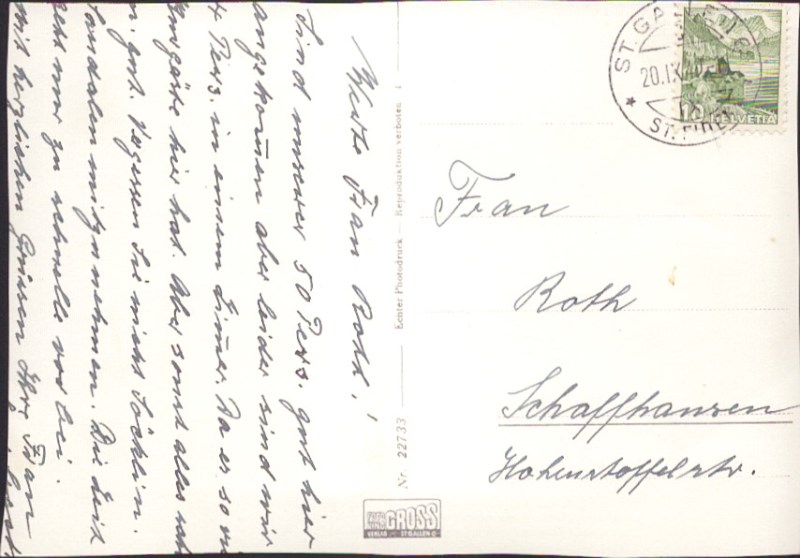 Werte Frau Roth!
Sind unserer 50 Pers. gut hier
angekommen aber leider sind wir
4 Pers. in einem Zimmer. Da es so vi
hier hat. Aber sonst alles
gut. Vegessen Sie nicht Söcklin.
Sandalen mitzunehmen. Die Zeit
geht nur zu schnelle vorbei.
Mit herzlichen Grüssen Ihre Frau
Echter Photodruck — Reproduktion verboten
Nr. 22733
GROSS
VERLAG ST. GALLEN
ST. GALLEN
20.IX.
ST. FIDEN
10 HELVETIA
Frau
Roth
Schaffhausen
Hohenstoffelstr.